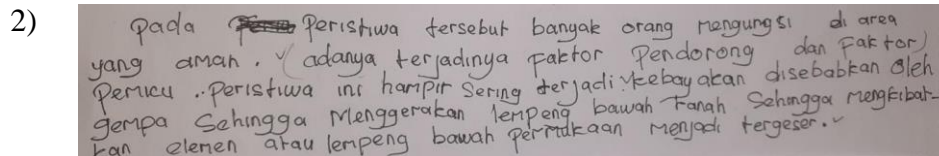 2)
Pada Peristiwa tersebut banyak orang mengungsi di area
yang aman. (adanya terjadinya Faktor Pendorong dan Faktor)
Pemicu.. Peristiwa ini hampir Sering terjadi. kebayakan disebabkan oleh
gempa Sehingga Menggerakan lempeng bawah tanah Sehingga mengkibat-
kan elemen atau lempeng bawah permukaan menjadi tergeser.